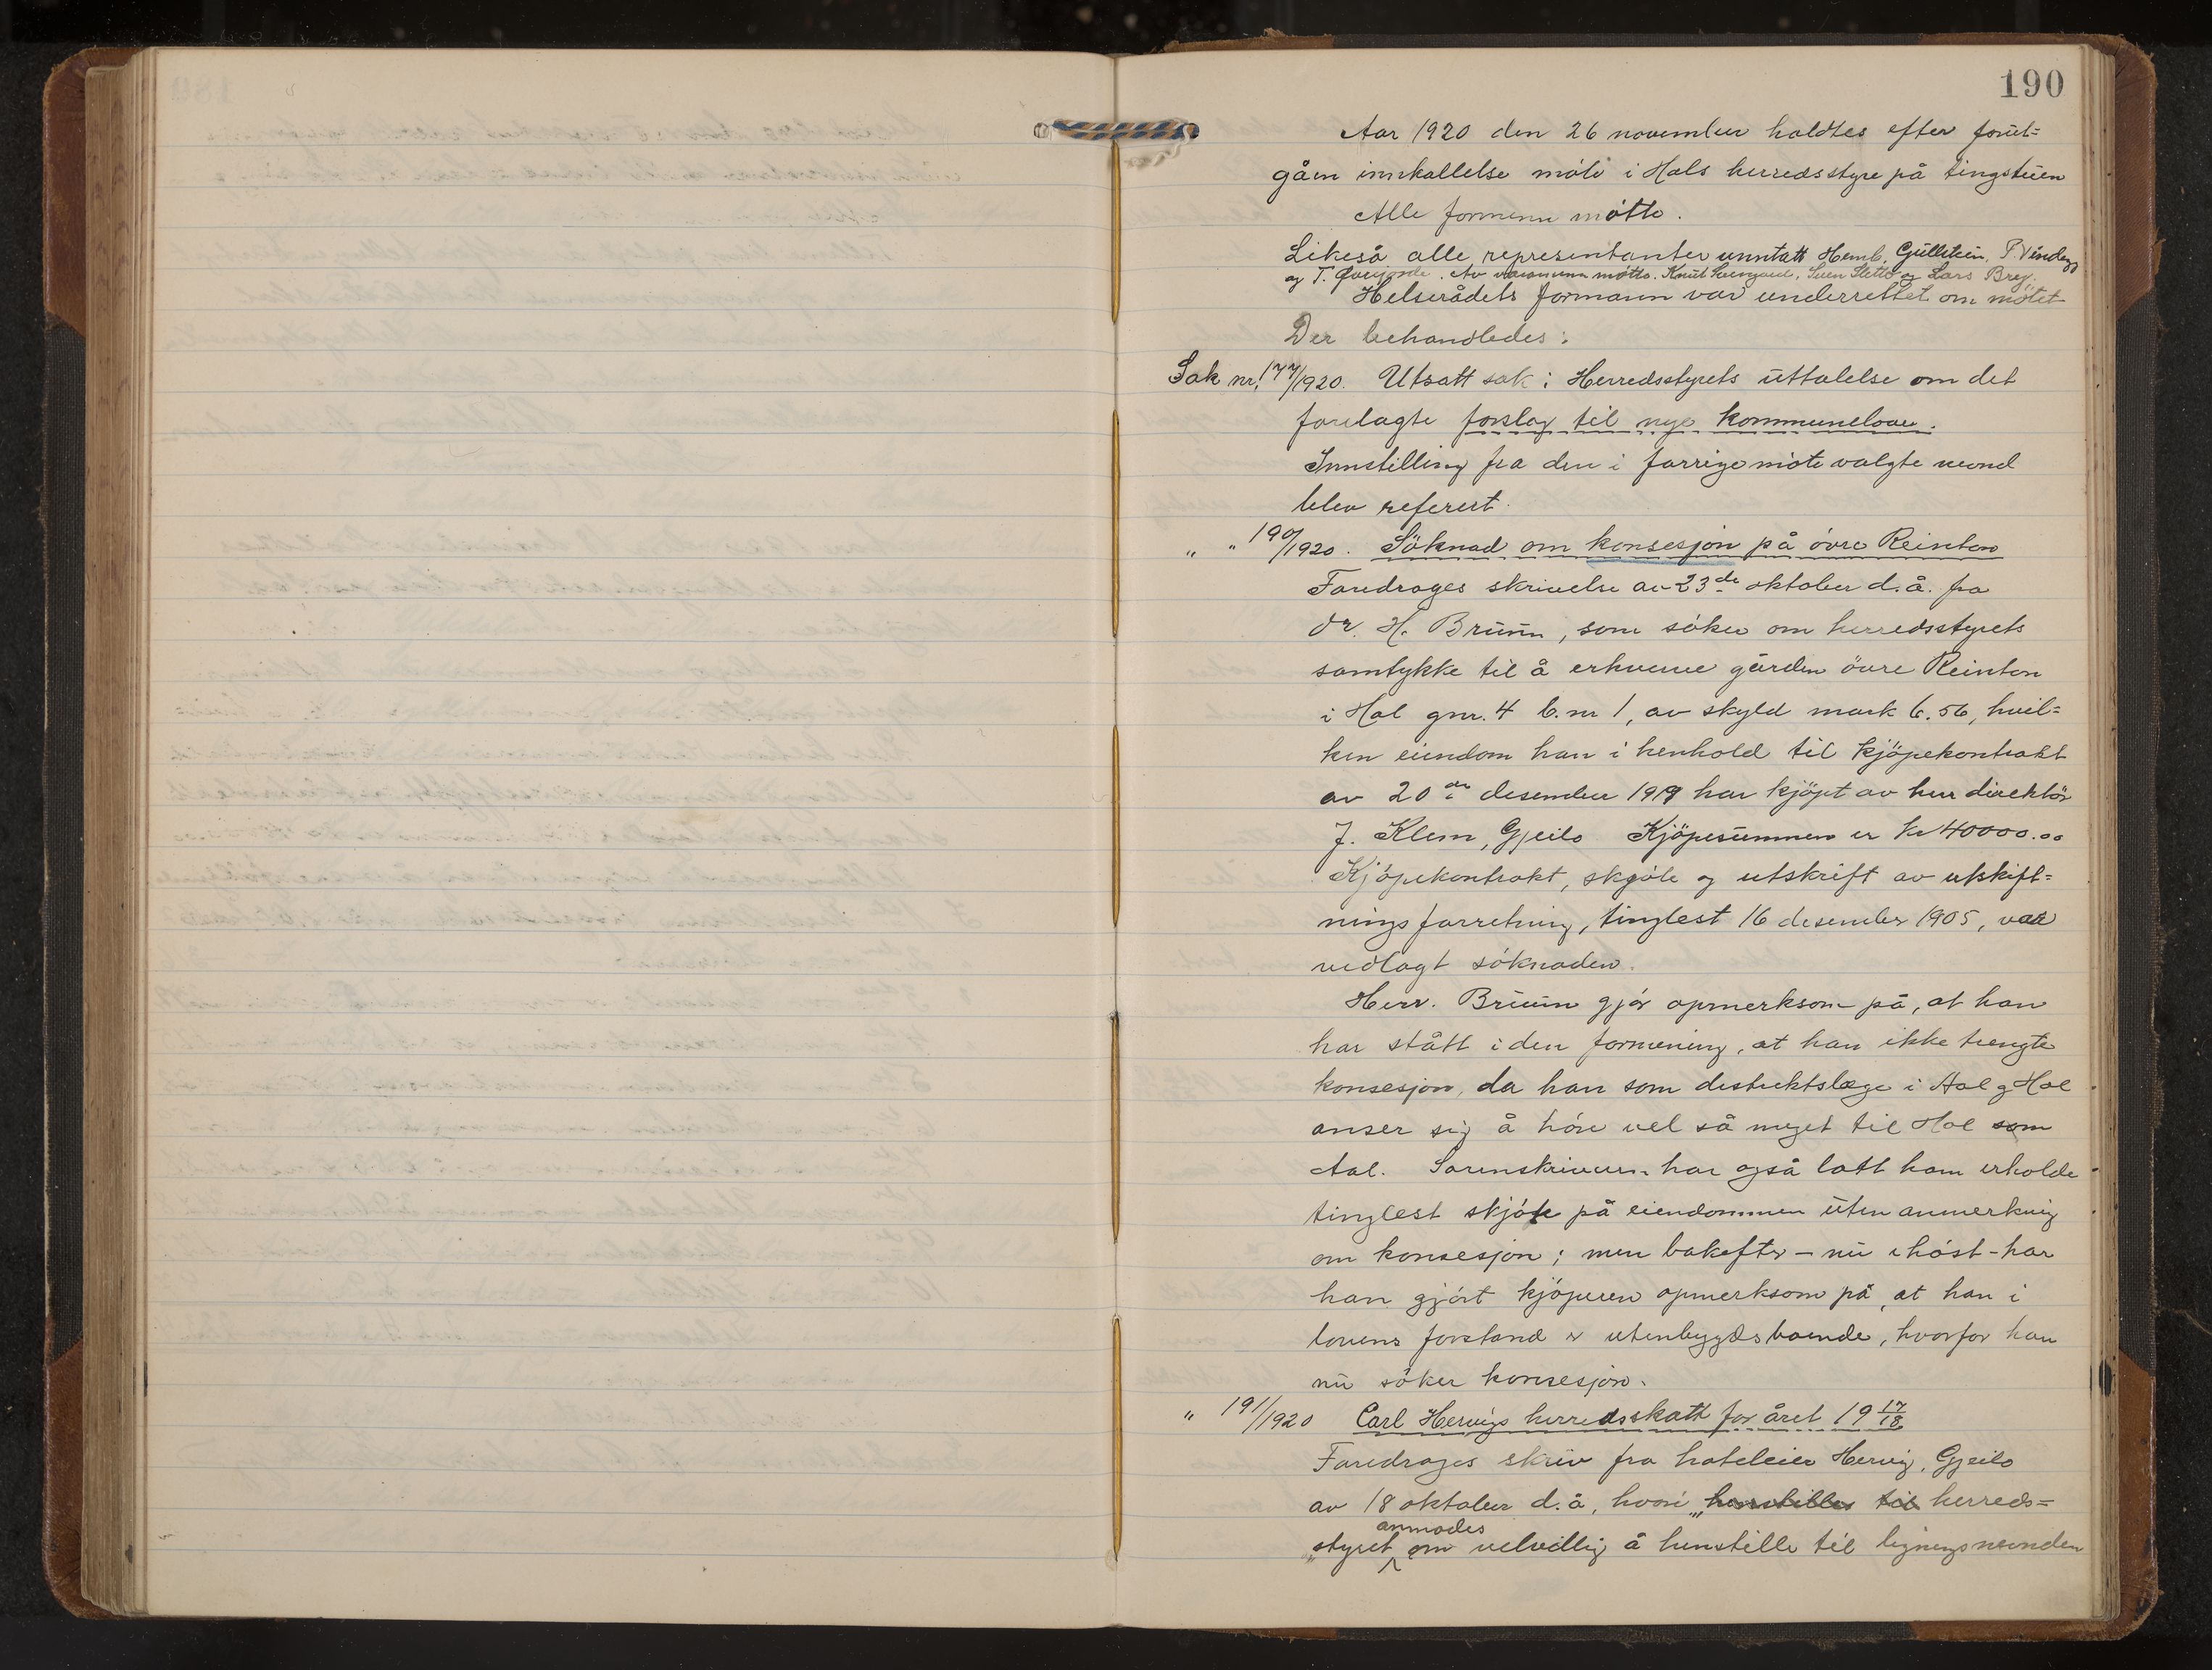 190
Aar 1920 den 26 november holdtes efter forut=
gåen innkallelse möte i Hols herredsstyre på tingstuen
Alle formenn mötte.
Likeså alle representanter unntatt Hemb. Gullstein, P. Vindegg
og T. . Av varamenn mötte. Knut Svengaard, Sven Sletto og Lars Breg.
Helserådets formann var underrettet om mötet
Der behandledes:
Sak nr. 177/1920. Utsatt sak: Herredsstyrets uttalelse om det
forelagte forslag til nye kommunelove.
Innstilling fra den i forrige möte valgte nevnd
blev referert.
" " 190/1920. Söknad om konsesjon på övre Reinton
Foredrages skrivelse av 23de oktober d.å. fra
dr. H. Bruun, som söker om herredsstyrets
samtykke til å erhverve gården övre Reinton
i Hol gnr. 4 b.nr 1, av skyld mark 6.56, hvil=
ken eiendom han i henhold til kjöpekontrakt
av 20de desember 1919 har kjöpt av herr direktör
J. Klem, Gjeilo Kjöpesummen er kr 40000.00
Kjöpekontrakt, skjöte og utskrift av utskift=
nings forretning, tinglest 16 desember 1905, var
vedlagt söknaden.
Herr. Bruun gjör opmerksom på, at han
har stått i den formening, at han ikke trengte
konsesjon, da han som distriktslæge i Aal og Hol
anser sig å höre vel så meget til Hol som
Aal. Sorenskriveren har også latt ham erholde
tinglest skjöte på eiendommen uten anmerkning
om konsesjon; men bakefter - nu i höst - har
han gjort kjöperen opmerksom på, at han i
lovens forstand er utenbygdsboende, hvorfor han
nu söker konsesjon.
" 191/1920 Carl Hervigs herredsskatt for året 19 17/18
Foredrages skriv fra hoteleier Hervig, Gjeilo
av 18 oktober d.å, hvori "henstilles til herreds=
anmodes
"styret om velvillig å henstille til ligningsnevnden